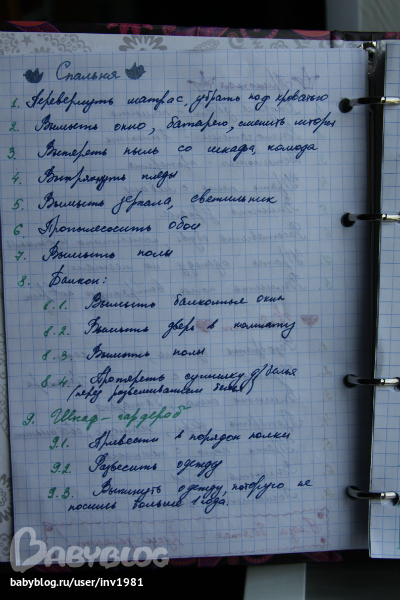 Спальня
1. Перевернуть матрас, убрать под кроватью
2. Вымыть окно, батарею, сменить шторы
3. Вытереть пыль со шкафа, комода
4. Вытряхнуть пледы
5. Вымыть зеркала, светильник
6. Пропылесосить обои
7. Вымыть полы
8. Балкон:
8.1. Вымыть балконные окна
8.2. Вымыть дверь в комнату
8.3. Вымыть полы
8.4. Протереть сушилку д/белья
(перед развешиванием белья)
9. Шкаф-гардероб
9.1. Привести в порядок полки
9.2. Развесить одежду
9.3. Выкинуть одежду, которую не
носили больше 1 года.
BABYBLOG
babyblog.ru/user/inv1981